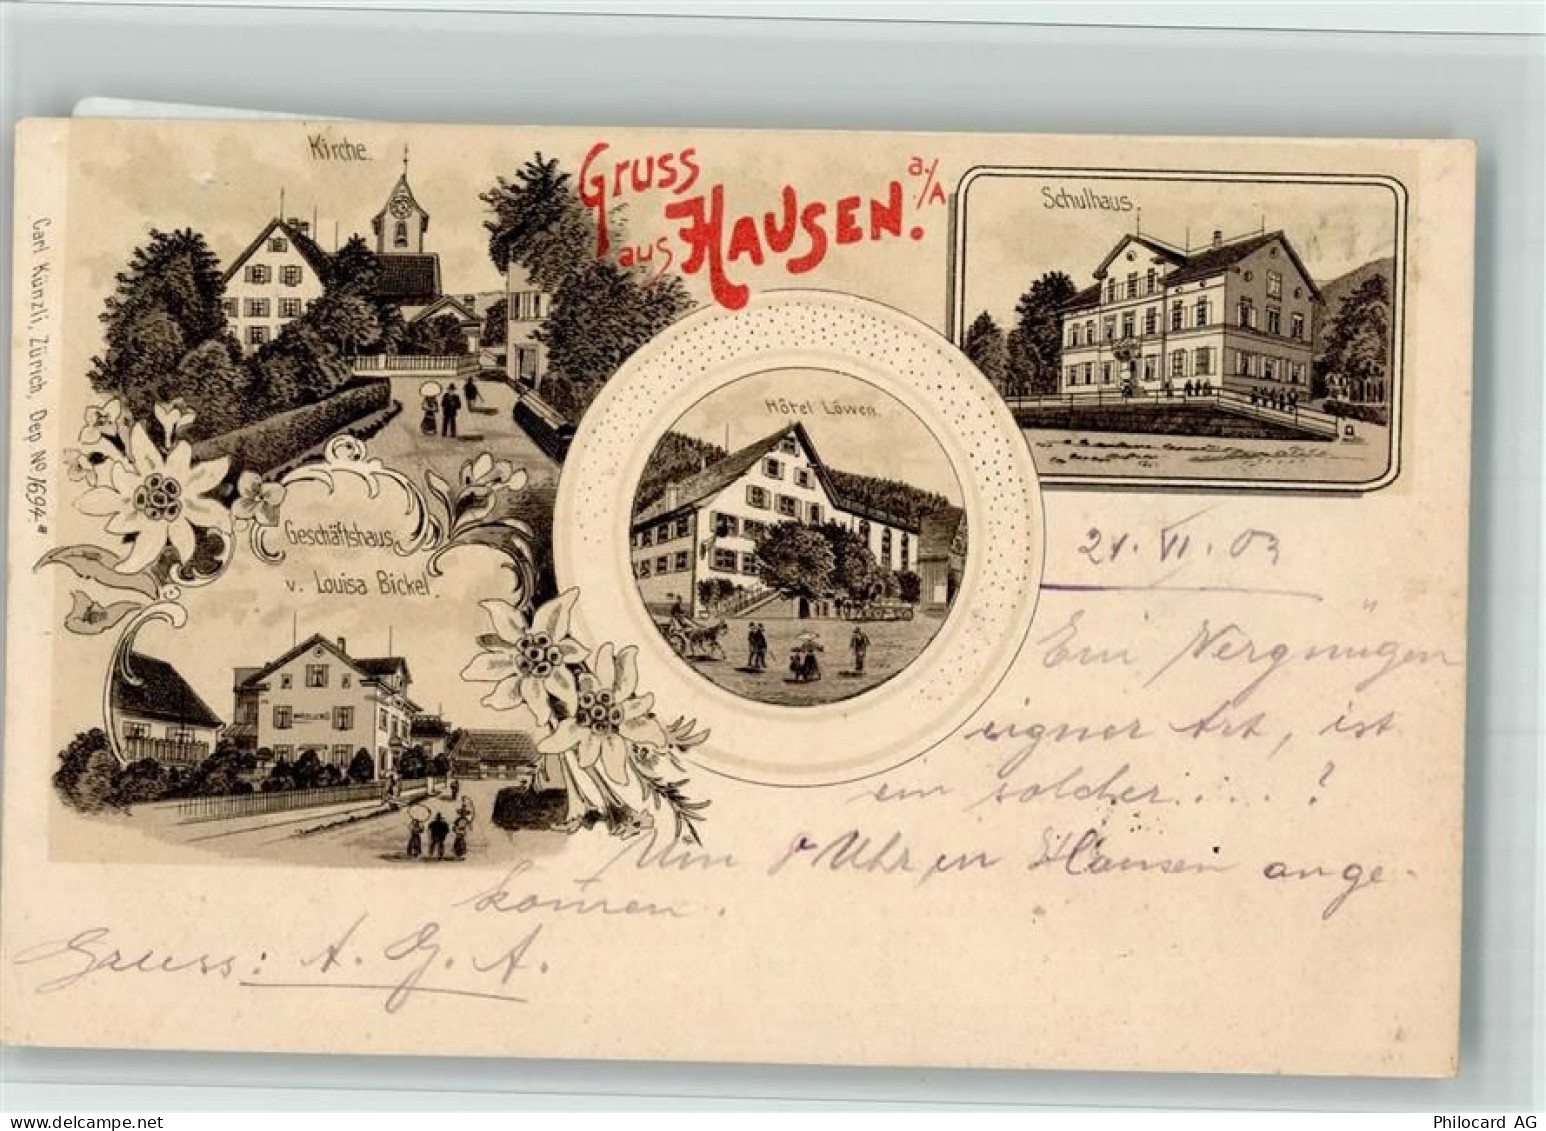 Kirche.
Gruss
aus HAUSEN. a./A
Schulhaus.
Carl Künzli, Zürich, Dep. No. 1694.a
Hôtel Löwen.
Geschäftshaus
v. Louisa Bickel.
21. VI. 03
Ein Vergnügen
eigner Art, ist
ein solcher....?
Um 8 Uhr in Hausen ange-
kom̄en.
Gruss: A. G. A.
www.delcampe.net
Philocard AG